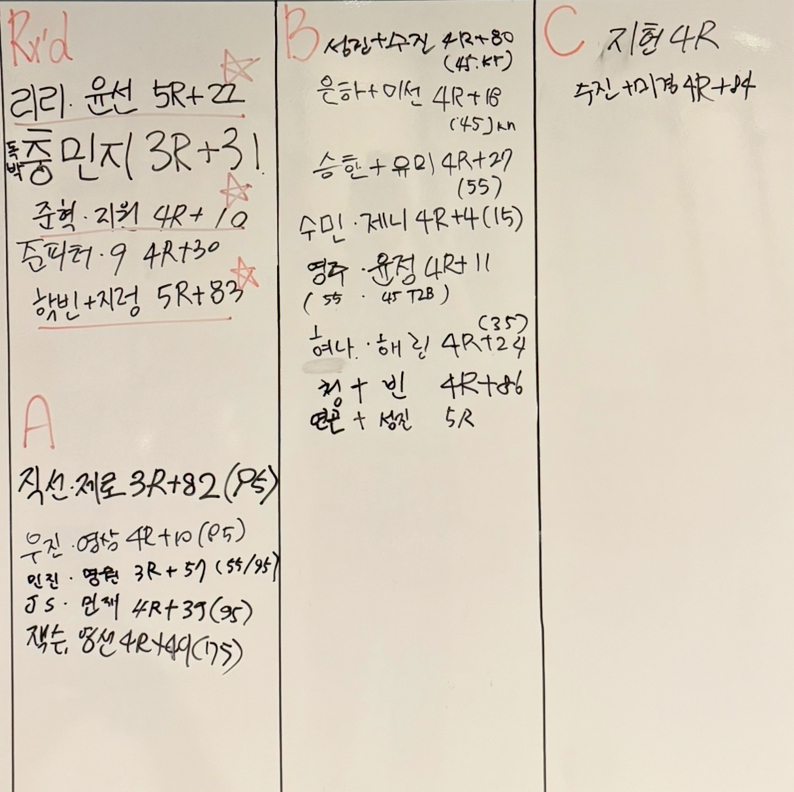 Rx'd
리리·윤선 5R+22
독박 충민지 3R+31
준혁·지원 4R+10
준피터·9 4R+30
학빈+지렁 5R+83
A
직선·제로 3R+82(95)
우진·영상 4R+10(95)
민진·명원 3R+57(55/95)
JS·민재 4R+39(95)
잭슨, 영선 4R+49(75)
B
성진+수진 4R+80
(45.KT)
은하+미선 4R+18
(45)kn
승한+유미 4R+27
(55)
수민·제니 4R+4(15)
영주·윤정 4R+11
(55 · 45 T2B)
(35)
혀나·해린 4R+24
청+빈 4R+86
연곤+성진 5R
C
지현 4R
수진+미경 4R+84